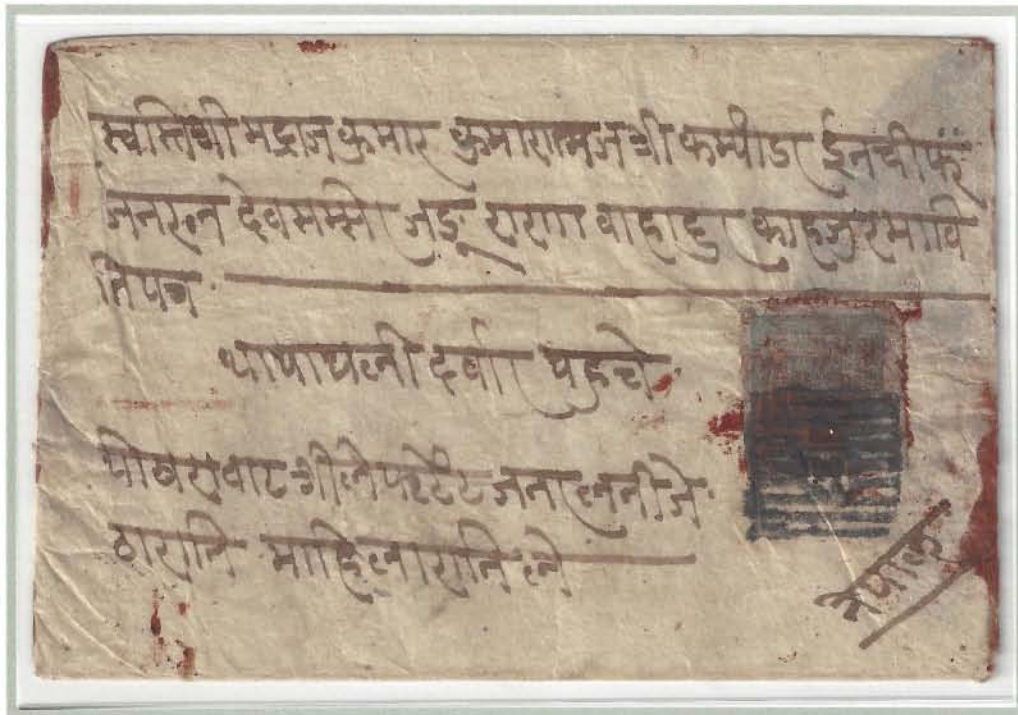 स्वस्तिश्री मद्राजकुमार कुमारात्मज श्री कम्यांडर ईनचीफ
जनरल देवसम्सेर जङ्ग राणा वाहादुर का हजुरमा वि
तिपत्र
थापाथली दर्वार पहुचे
पोखरावाट श्री जनरलनी जे
ठारानि माहिलारानिले
नेपाल